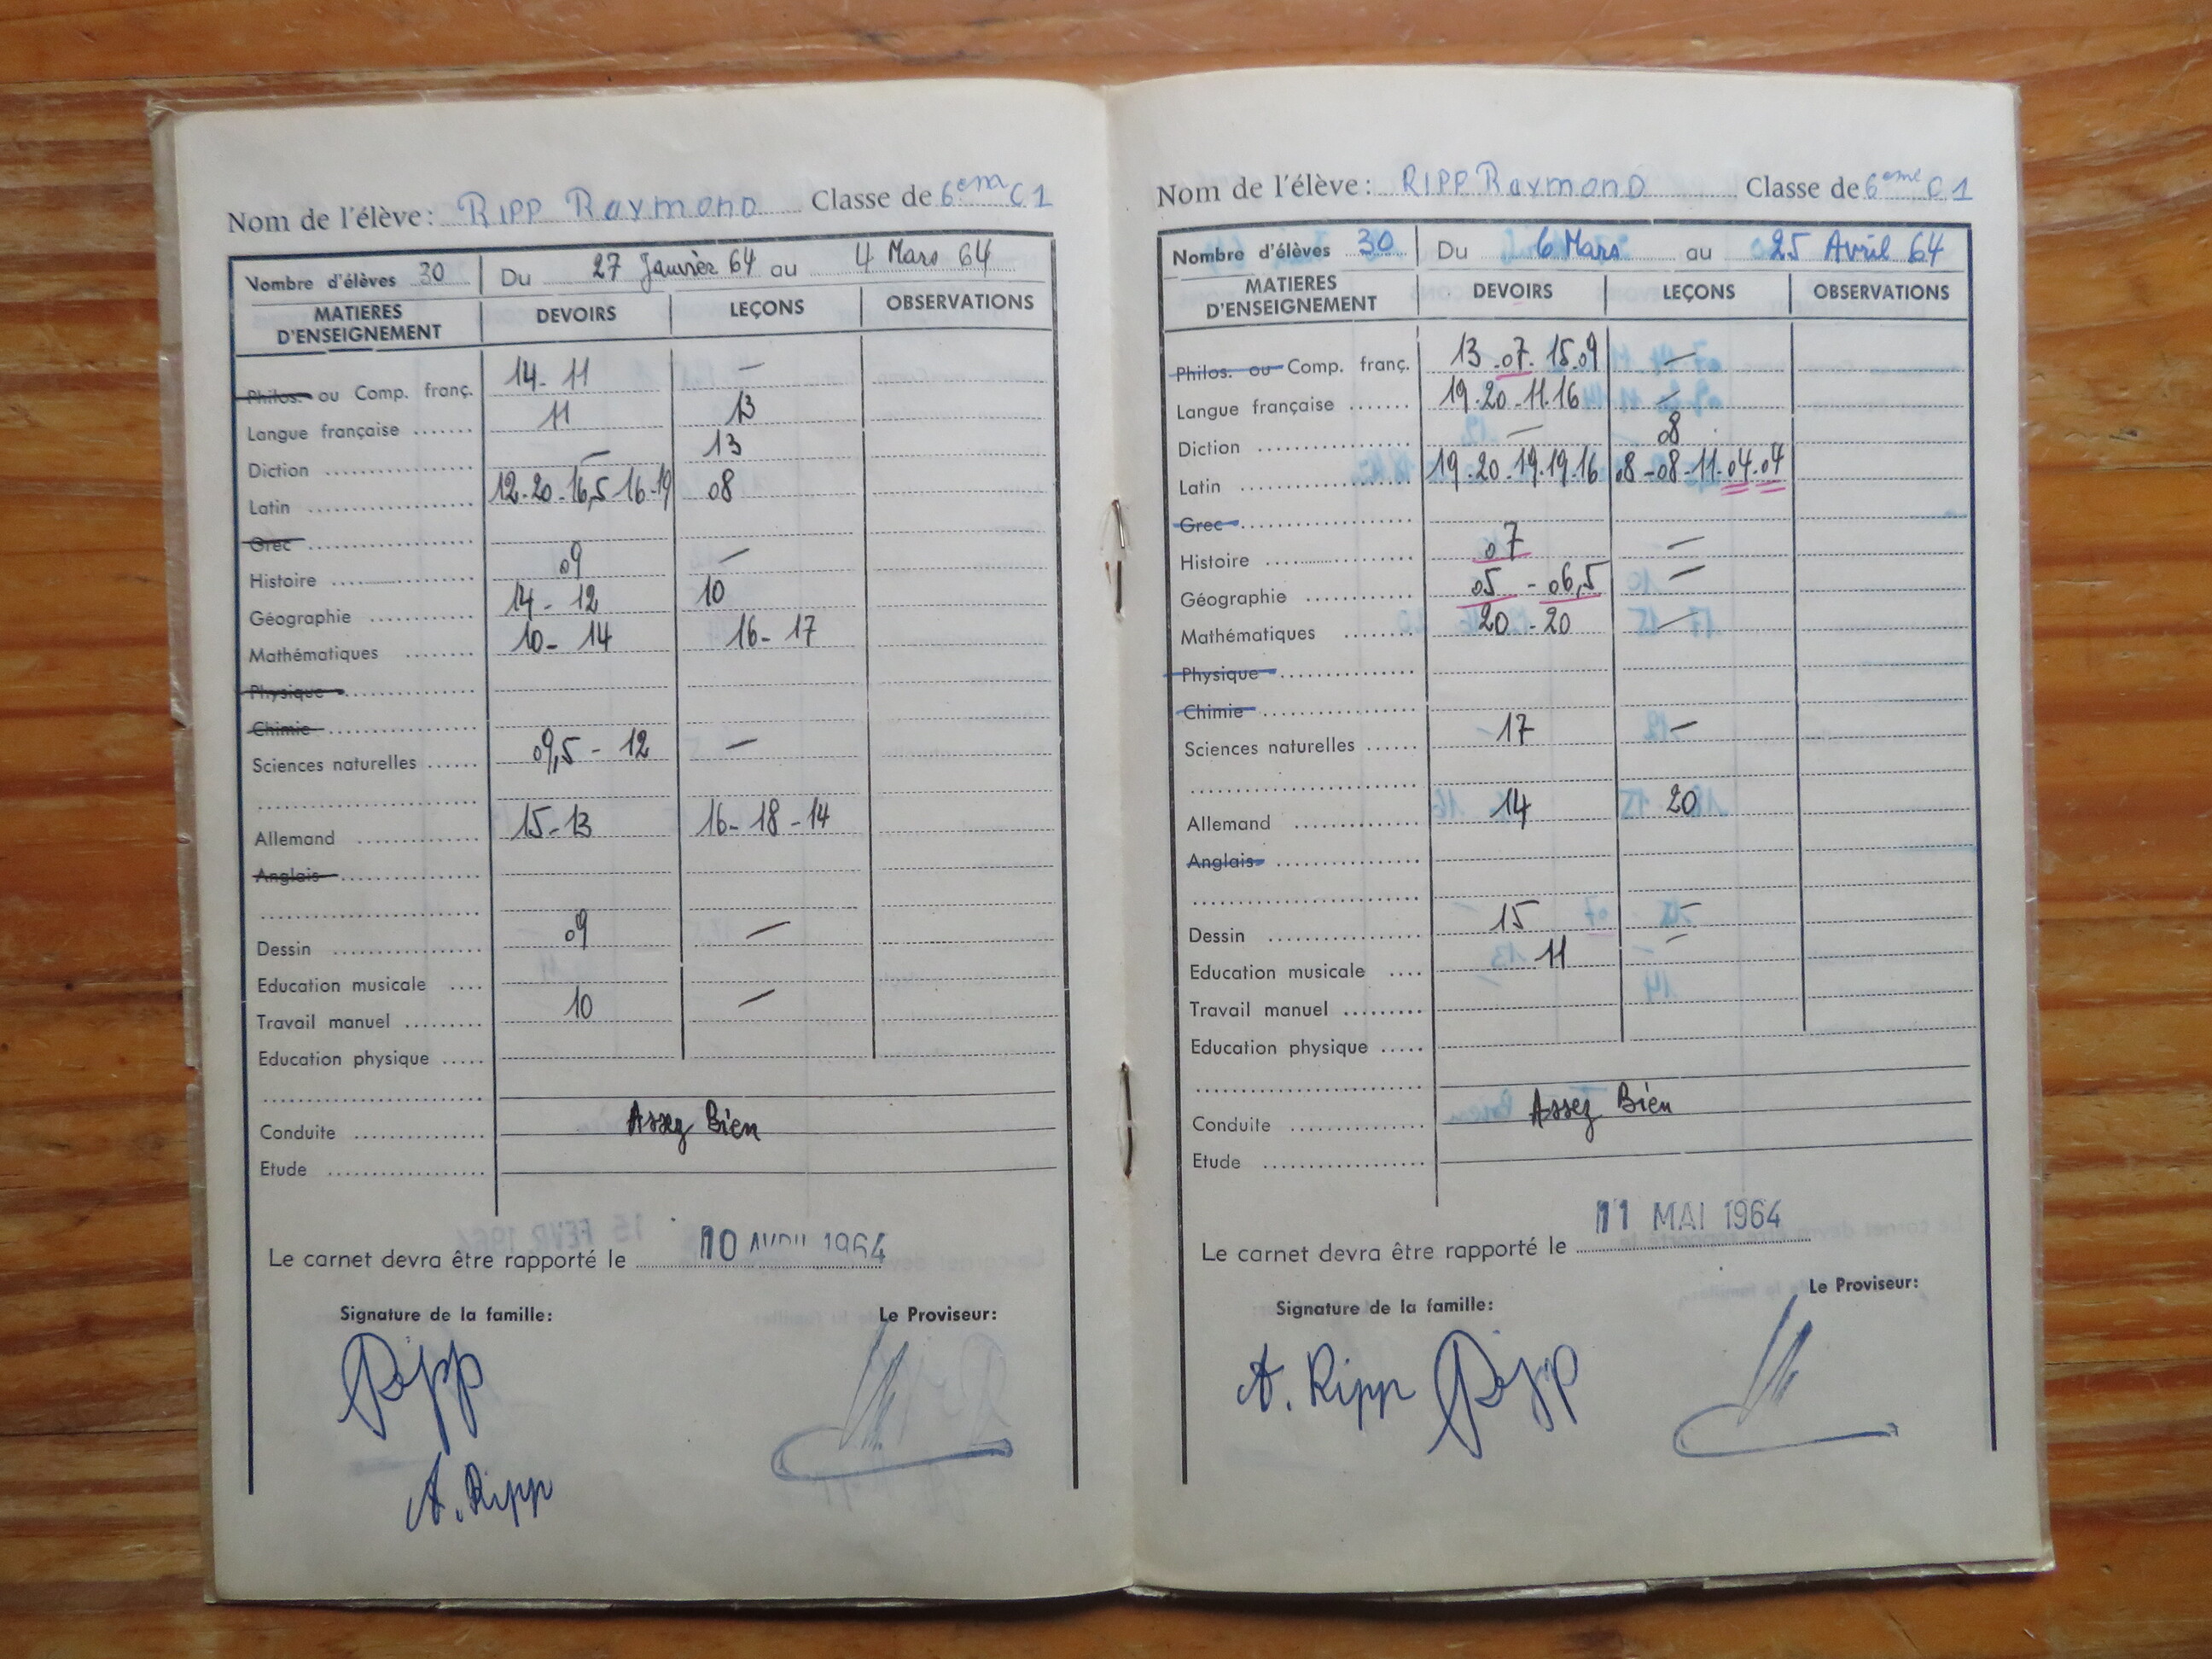 Nom de l'élève: RIPP Raymond Classe de 6em C1
Nombre d'élèves 30 Du 27 Janvier 64 au 4 Mars 64
MATIERES D'ENSEIGNEMENT DEVOIRS LEÇONS OBSERVATIONS
Philos. ou Comp. franç. 14 - 11 —
Langue française 11 13
Diction — 13
Latin 12-20-16,5-16-19 08
Grec
Histoire 09 —
Géographie 14 - 12 10
Mathématiques 10 - 14 16 - 17
Physique
Chimie
Sciences naturelles 09,5 - 12 —
Allemand 15-13 16-18-14
Anglais
Dessin 09 —
Education musicale
Travail manuel 10 —
Education physique
Conduite Assez Bien
Etude
Le carnet devra être rapporté le 10 AVRIL 1964
Signature de la famille: Le Proviseur:
Ripp
A. Ripp
Nom de l'élève: RIPP Raymond Classe de 6eme C1
Nombre d'élèves 30 Du 6 Mars au 25 Avril 64
MATIERES D'ENSEIGNEMENT DEVOIRS LEÇONS OBSERVATIONS
Philos. ou Comp. franç. 13-07-15.09 —
Langue française 19.20-11.16 —
Diction — 08
Latin 19.20.19.19.16 08-08-11.04.04
Grec
Histoire 07 —
Géographie 05 - 06,5 —
Mathématiques 20 - 20 —
Physique
Chimie
Sciences naturelles 17 —
Allemand 14 20
Anglais
Dessin 15 —
Education musicale 11 —
Travail manuel
Education physique
Conduite Assez Bien
Etude
Le carnet devra être rapporté le 11 MAI 1964
Signature de la famille: Le Proviseur:
A. Ripp Ripp